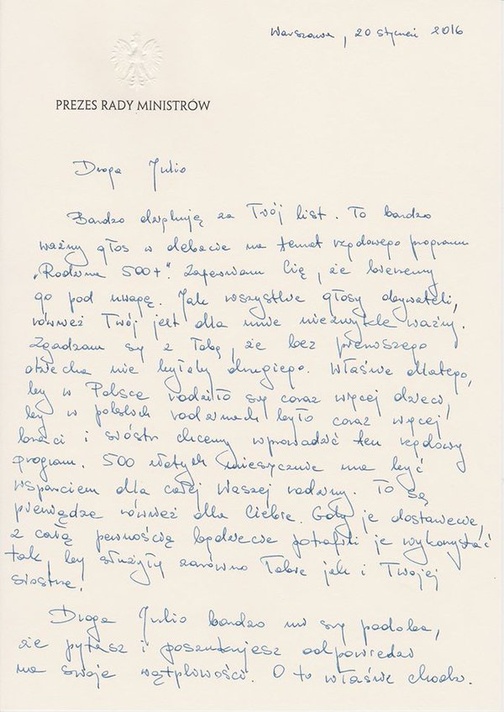 Warszawa, 20 styczeń 2016
PREZES RADY MINISTRÓW
Droga Julio
Bardzo dziękuję za Twój list. To bardzo
ważny głos w debacie na temat rządowego programu
„Rodzina 500+". Zapewniam Cię, że bierzemy
go pod uwagę. Jak wszystkie głosy obywateli,
również Twój jest dla mnie niezwykle ważny.
Zgadzam się z Tobą, że bez pierwszego
dziecka nie byłoby drugiego. Właśnie dlatego,
by w Polsce rodziło się coraz więcej dzieci,
by w polskich rodzinach było coraz więcej
braci i sióstr chcemy wprowadzić ten rządowy
program. 500 złotych miesięcznie ma być
wsparciem dla całej Waszej rodziny. To są
pieniądze również dla Ciebie. Gdy je dostaniecie,
z całą pewnością będziecie potrafili je wykorzystać
tak, by służyły zarówno Tobie jak i Twojej
siostrze.
Droga Julio bardzo mi się podoba,
że pytasz i poszukujesz odpowiedzi
na swoje wątpliwości. O to właśnie chodzi.